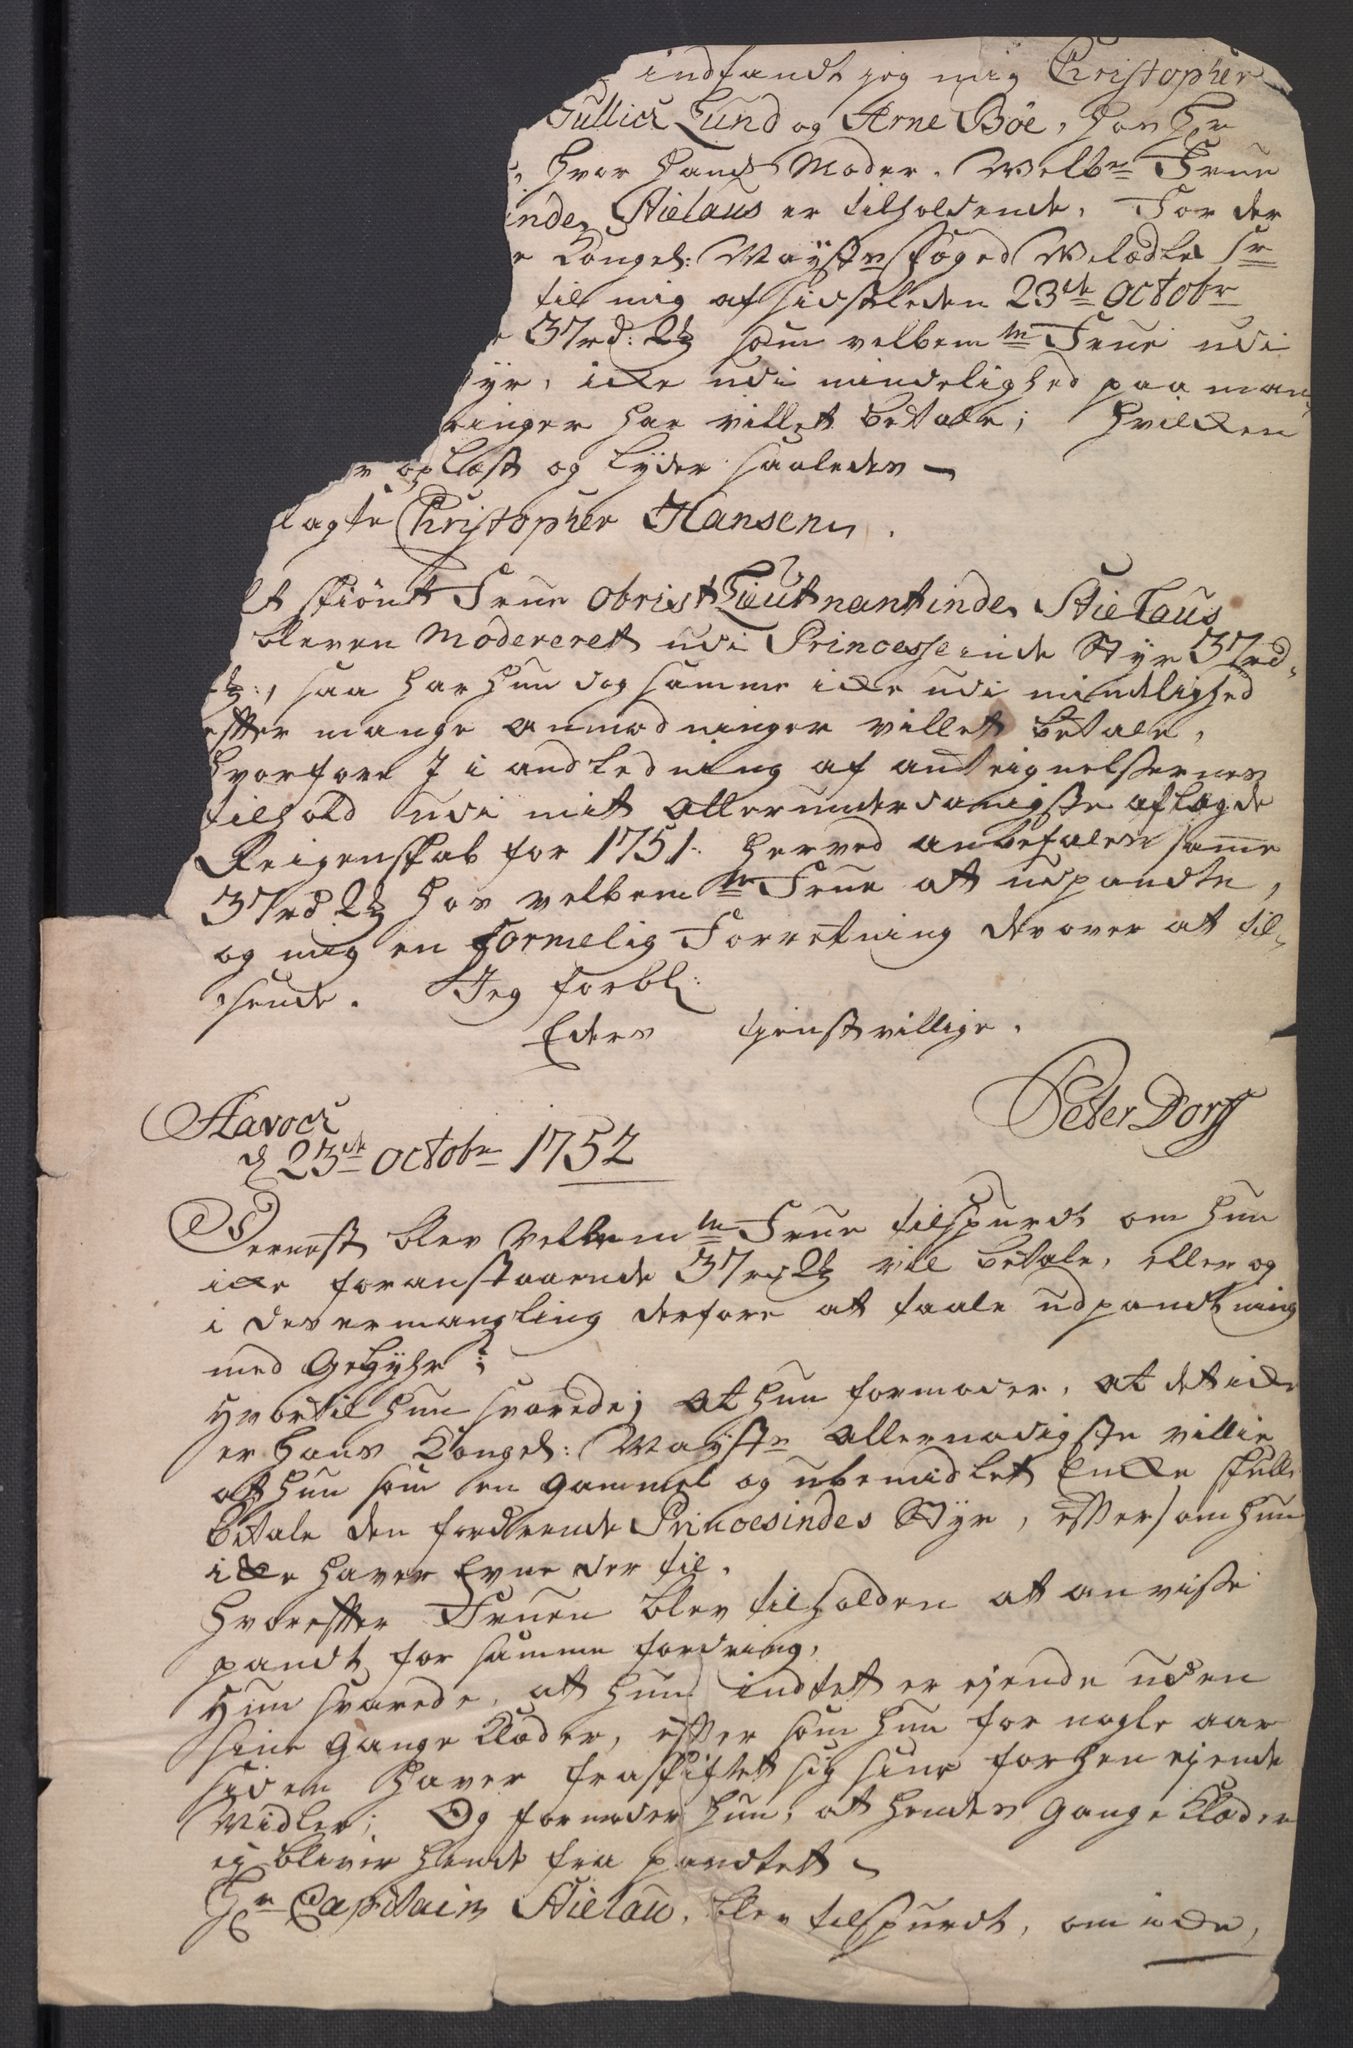 indfandt jeg mig Christopher
Gullich Lund og Arne Böe, hos Hr
hvor hans Moder, Welbne Frue
inde Stielaus er tilholdende, For der
Kongel: Mayestes foged Welædle Sr
til mig af sidstleden 23de Octobr
37rd: 2ß som velbemte Frue udi
Styr, icke udi mindelighed paa man-
ringer har villet betale; hvilken
oplæst og lyder saaledes
lagte Christopher Hansen.
skiönt Frue Obrist Lieutnantinde Stielaus
bleven Modereret udi Princesseinde Styr 37rd
ß:, saa har hun dog samme icke udi mindlighed
efter mange anmodninger villet betale,
hvorfore I i andledning af anteignelsernes
tilhold udi mit allerunderdanigste aflagde
Reigenskab for 1751. herved anbefales same
37rd 2ß hos velbemte Frue at udpandte,
og mig en formelig Forretning derover at til-
sende. Jeg forbl:
Eders tienstvillige.
Peter Dorff
Stavoch
d 23de Octobr 1752
Dernest blev Velbemte Frue tilspurdt om hun
icke foranstaaende 37rd 2ß vil betale, eller og
i des ermangling derfore at taale udpandtning
med Gebyhr;
Hvortil hun svarede; at hun formoder, at det icke
er hans Kongel: Mayste allernadigste villie
at hun som en gammel og ubemidlet Encke skulle
betale den fordrende Princesindes Styr, eftersom hun
icke haver Evne der til.
hvorefter Fruen blev tilholden at anvisse
pandt for samme fordring,
Hun svarede, at hun indtet er ejende uden
sine Gange Klæder, efter som hun for nogle aar
siden haver fraskiftet sig sine forhen ejende
Midler; Og formoder hun, at hendes Gange Klæder
ej bliver hende fra pandtet
Hr Capitain Stielau, blev tilspurdt, om icke,